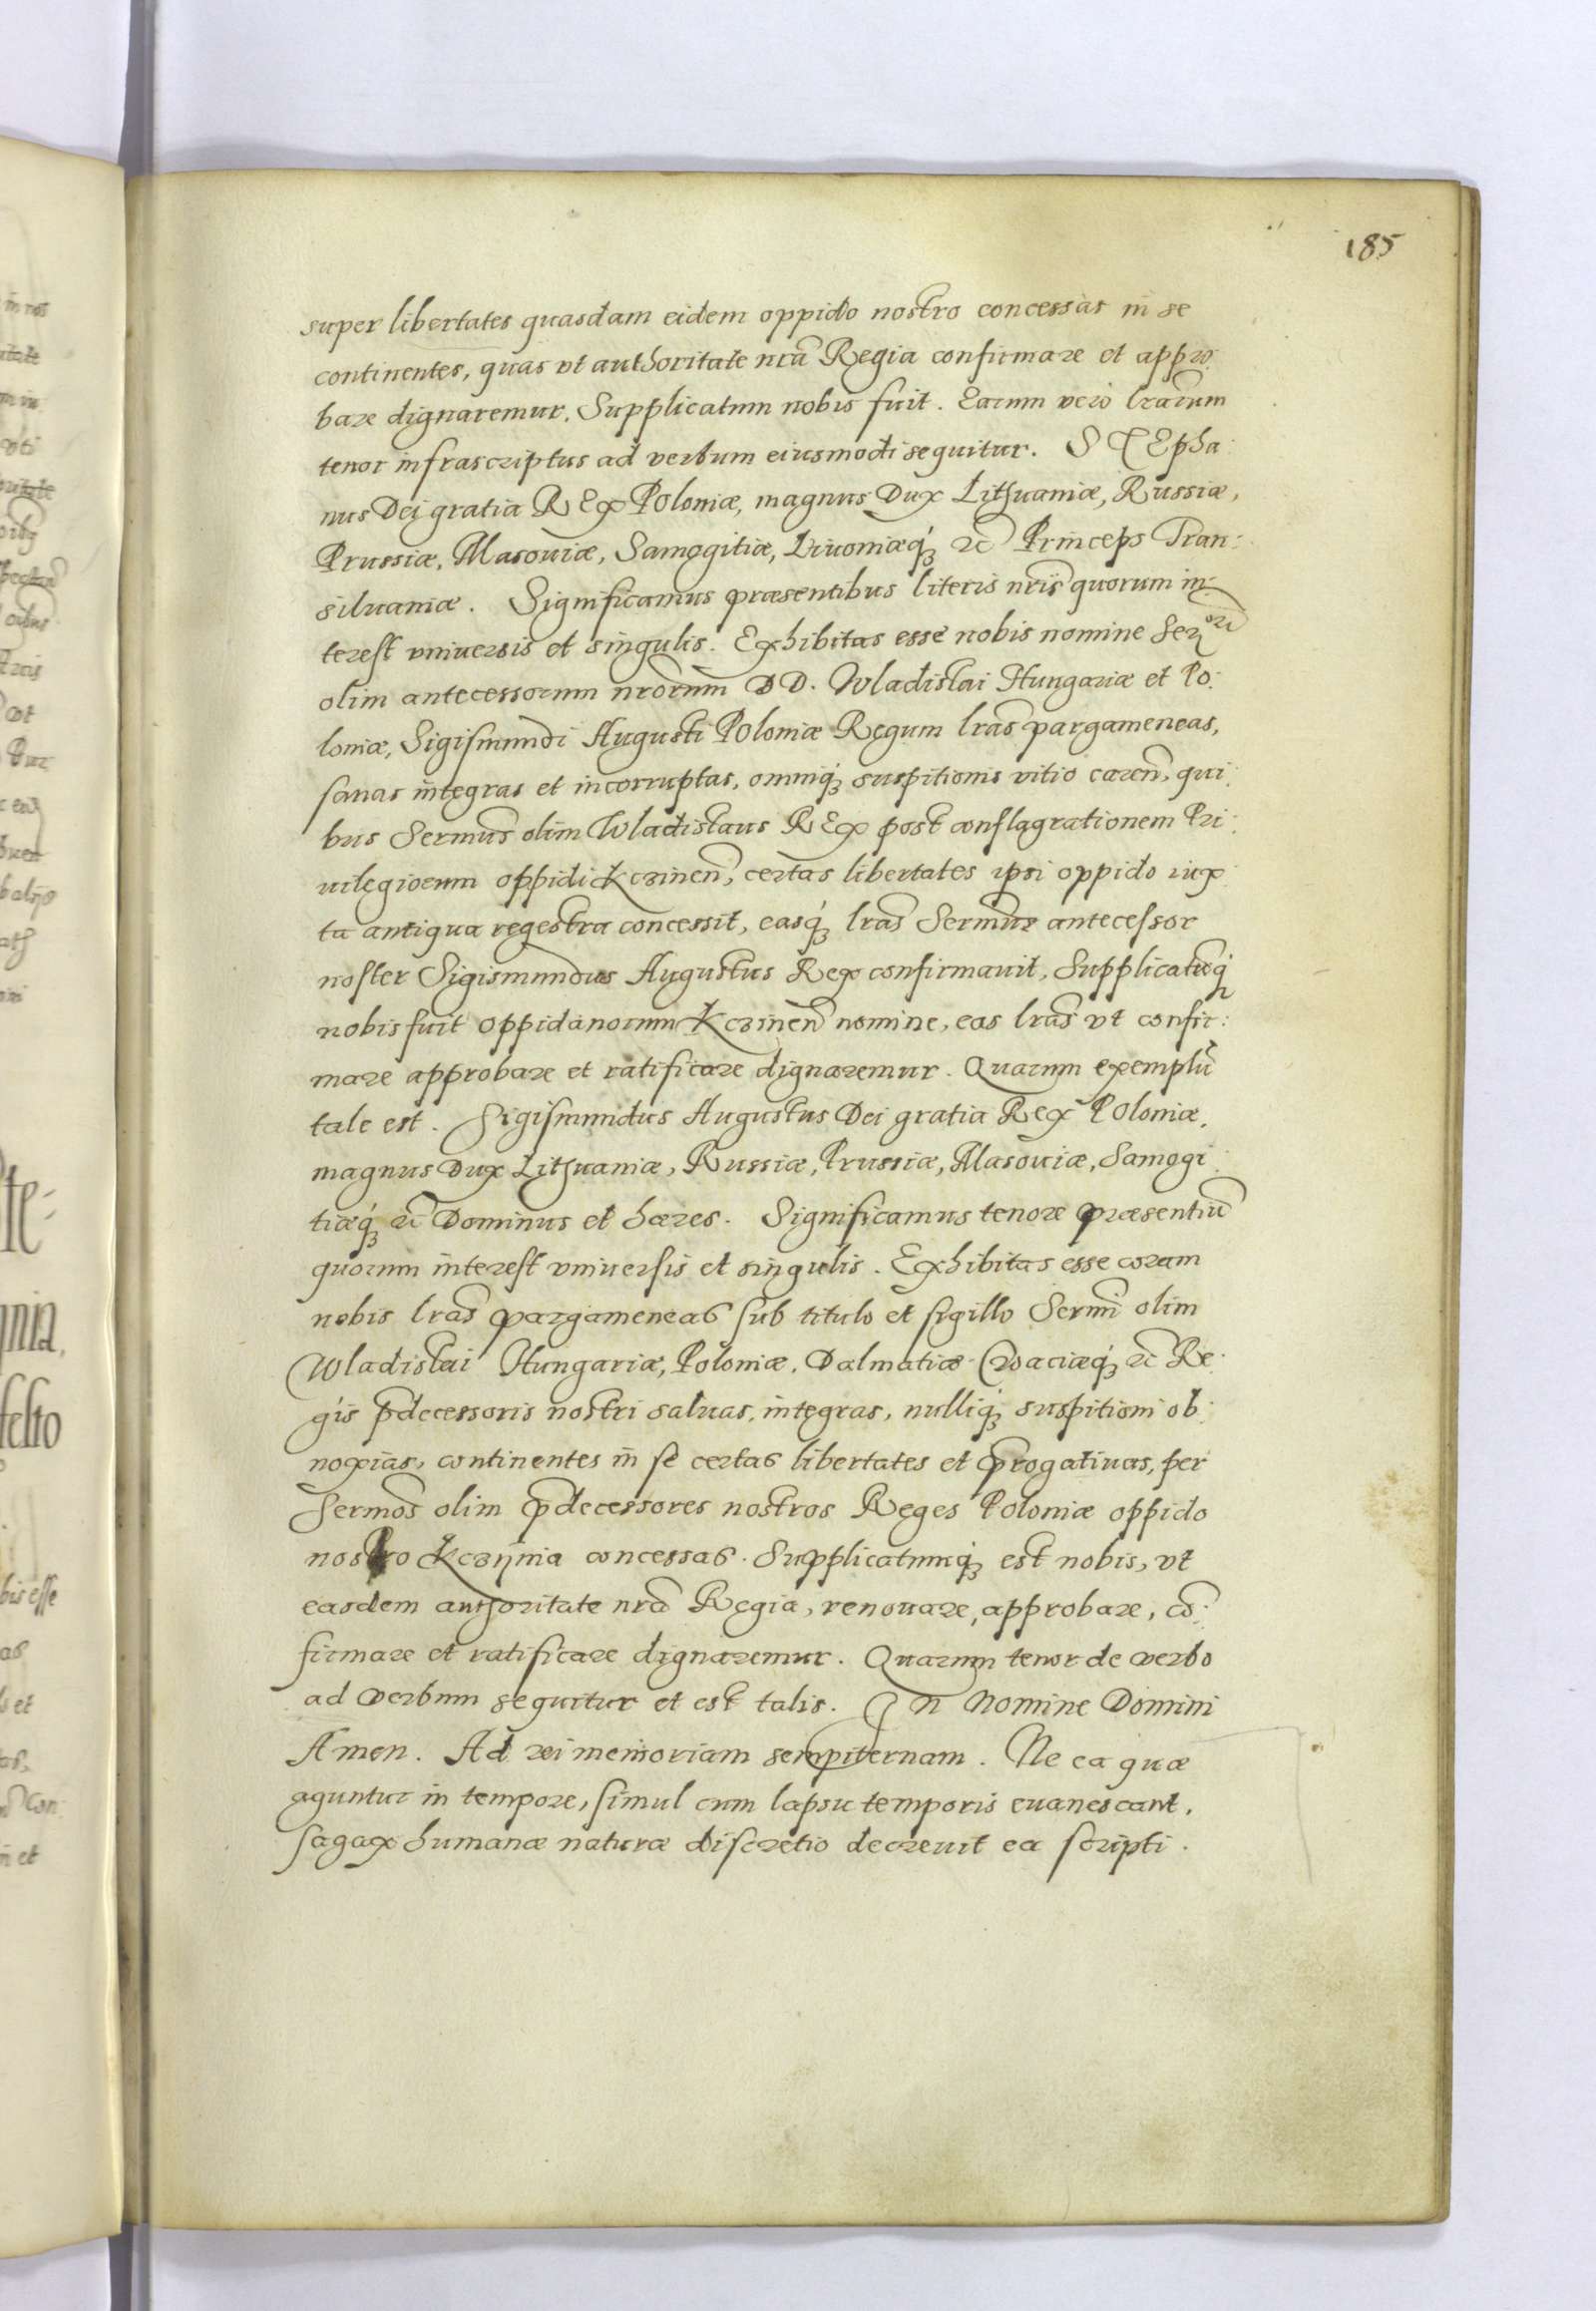 185
super libertates quasdam eidem oppido nostro concessas in se
continentes, quas vt authoritate nrã Regia confirmare et appro:
bare dignaremur. Supplicatum nobis fuit. Earum verò lrãrum
tenor infrascriptus ad verbum eiusmodi sequitur. STEpha:
nus Dei gratia REx Poloniæ, magnus Dux Lithuaniæ, Russiæ,
Prussiæ, Masouiæ, Samogitiæ, Liuoniæq́ꝫ ꝛc̃ Princeps Tran:
siluaniæ. Significamus præsentibus literis nrĩs quorum in:
terest vniuersis et singulis. Exhibitas esse nobis nomine
olim antecessorum nrõrum DD. Wladislai Hungariæ et Po:
loniæ, Sigismundi Augusti Poloniæ Regum lrãs pargameneas,
sanas integras et incorruptas, omniq́ꝫ suspitionis vitio careñ, qui:
bus Sermũs olim Wladislaus REx post conflagrationem Pri:
uilegiorum oppidi Kczineñ, certas libertates ipsi oppido iux:
ta antiqua regestra concessit, easq́ꝫ lrãs Sermũs antecessor
noster Sigismundus Augustus Rex confirmauit, Supplicatũq́
nobis fuit oppidanorum Kczineñ nomine, eas lrãs vt confir:
mare approbare et ratificare dignaremur. Quarum exemplũ
tale est. Sigismundus Augustus Dei gratia Rex Poloniæ,
magnus Dux Lithuaniæ, Russiæ, Prussiæ, Masouiæ, Samogi:
tiæq́ꝫ ꝛc̃ Dominus et hæres. Significamus tenore præsentiũ
quorum interest vniuersis et singulis. Exhibitas esse coram
nobis lrãs pargameneas sub titulo et sigillo Sermĩ olim
Wladislai Hungariæ, Poloniæ, Dalmatiæ Croaciæq́ꝫ ꝛc̃ Re:
gis p̃decessoris nostri saluas, integras, nulliq́ꝫ suspitioni ob:
noxias, continentes in se certas libertates et p̃rogatiuas, per
Sermõs olim p̃decessores nostros Reges Poloniæ oppido
nostro Kczijnia concessas. Supplicatumq́ꝫ est nobis, vt
easdem authoritate nrã Regia, renouare, approbare, cõ:
firmare et ratificare dignaremur. Quarum tenor de verbo
ad verbum sequitur et est talis. In Nomine Domini
Amen. Ad rei memoriam sempiternam. Ne ea quæ
aguntur in tempore, simul cum lapsu temporis euanescant,
sagax humanæ naturæ discretio decreuit ea scripti: